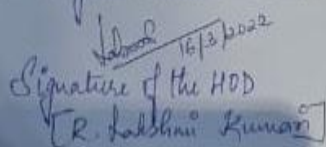 16/3/2022
Signature of the HOD
[R. Lakshmi Kumari]